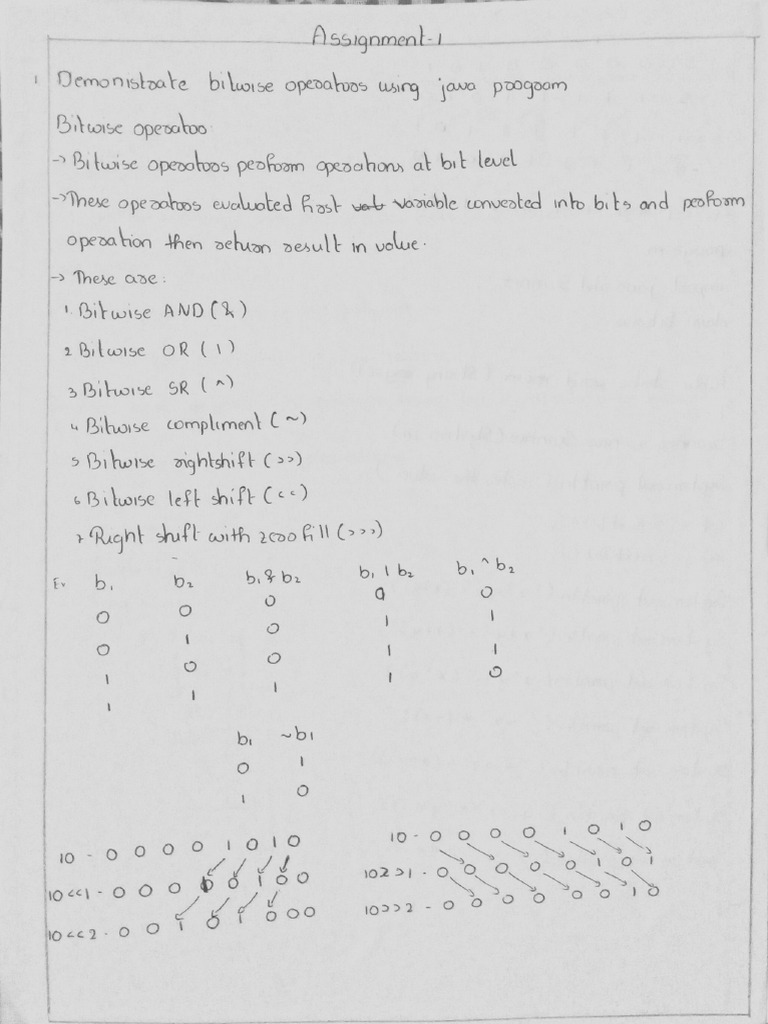 Assignment-1
1 Demonistrate bitwise operators using java program
Bitwise operator
-> Bitwise operators perform operations at bit level
-> These operators evaluated first variable converted into bits and perform
operation then return result in value.
-> These are:
1. Bitwise AND (&)
2 Bitwise OR (|)
3 Bitwise SR (^)
4. Bitwise compliment (~)
5 Bitwise rightshift (>>)
6 Bitwise left shift (<<)
7 Right shift with zero fill (>>>)
Ex b1 b2 b1 & b2 b1 | b2 b1 ^ b2
0 0 0 0 0
0 1 0 1 1
1 0 0 1 1
1 1 1 1 0
b1 ~b1
0 1
1 0
10 - 0 0 0 0 1 0 1 0
10<<1 - 0 0 0 1 0 1 0 0
10<<2 - 0 0 1 0 1 0 0 0
10 - 0 0 0 0 1 0 1 0
10>>1 - 0 0 0 0 0 1 0 1
10>>2 - 0 0 0 0 0 0 1 0